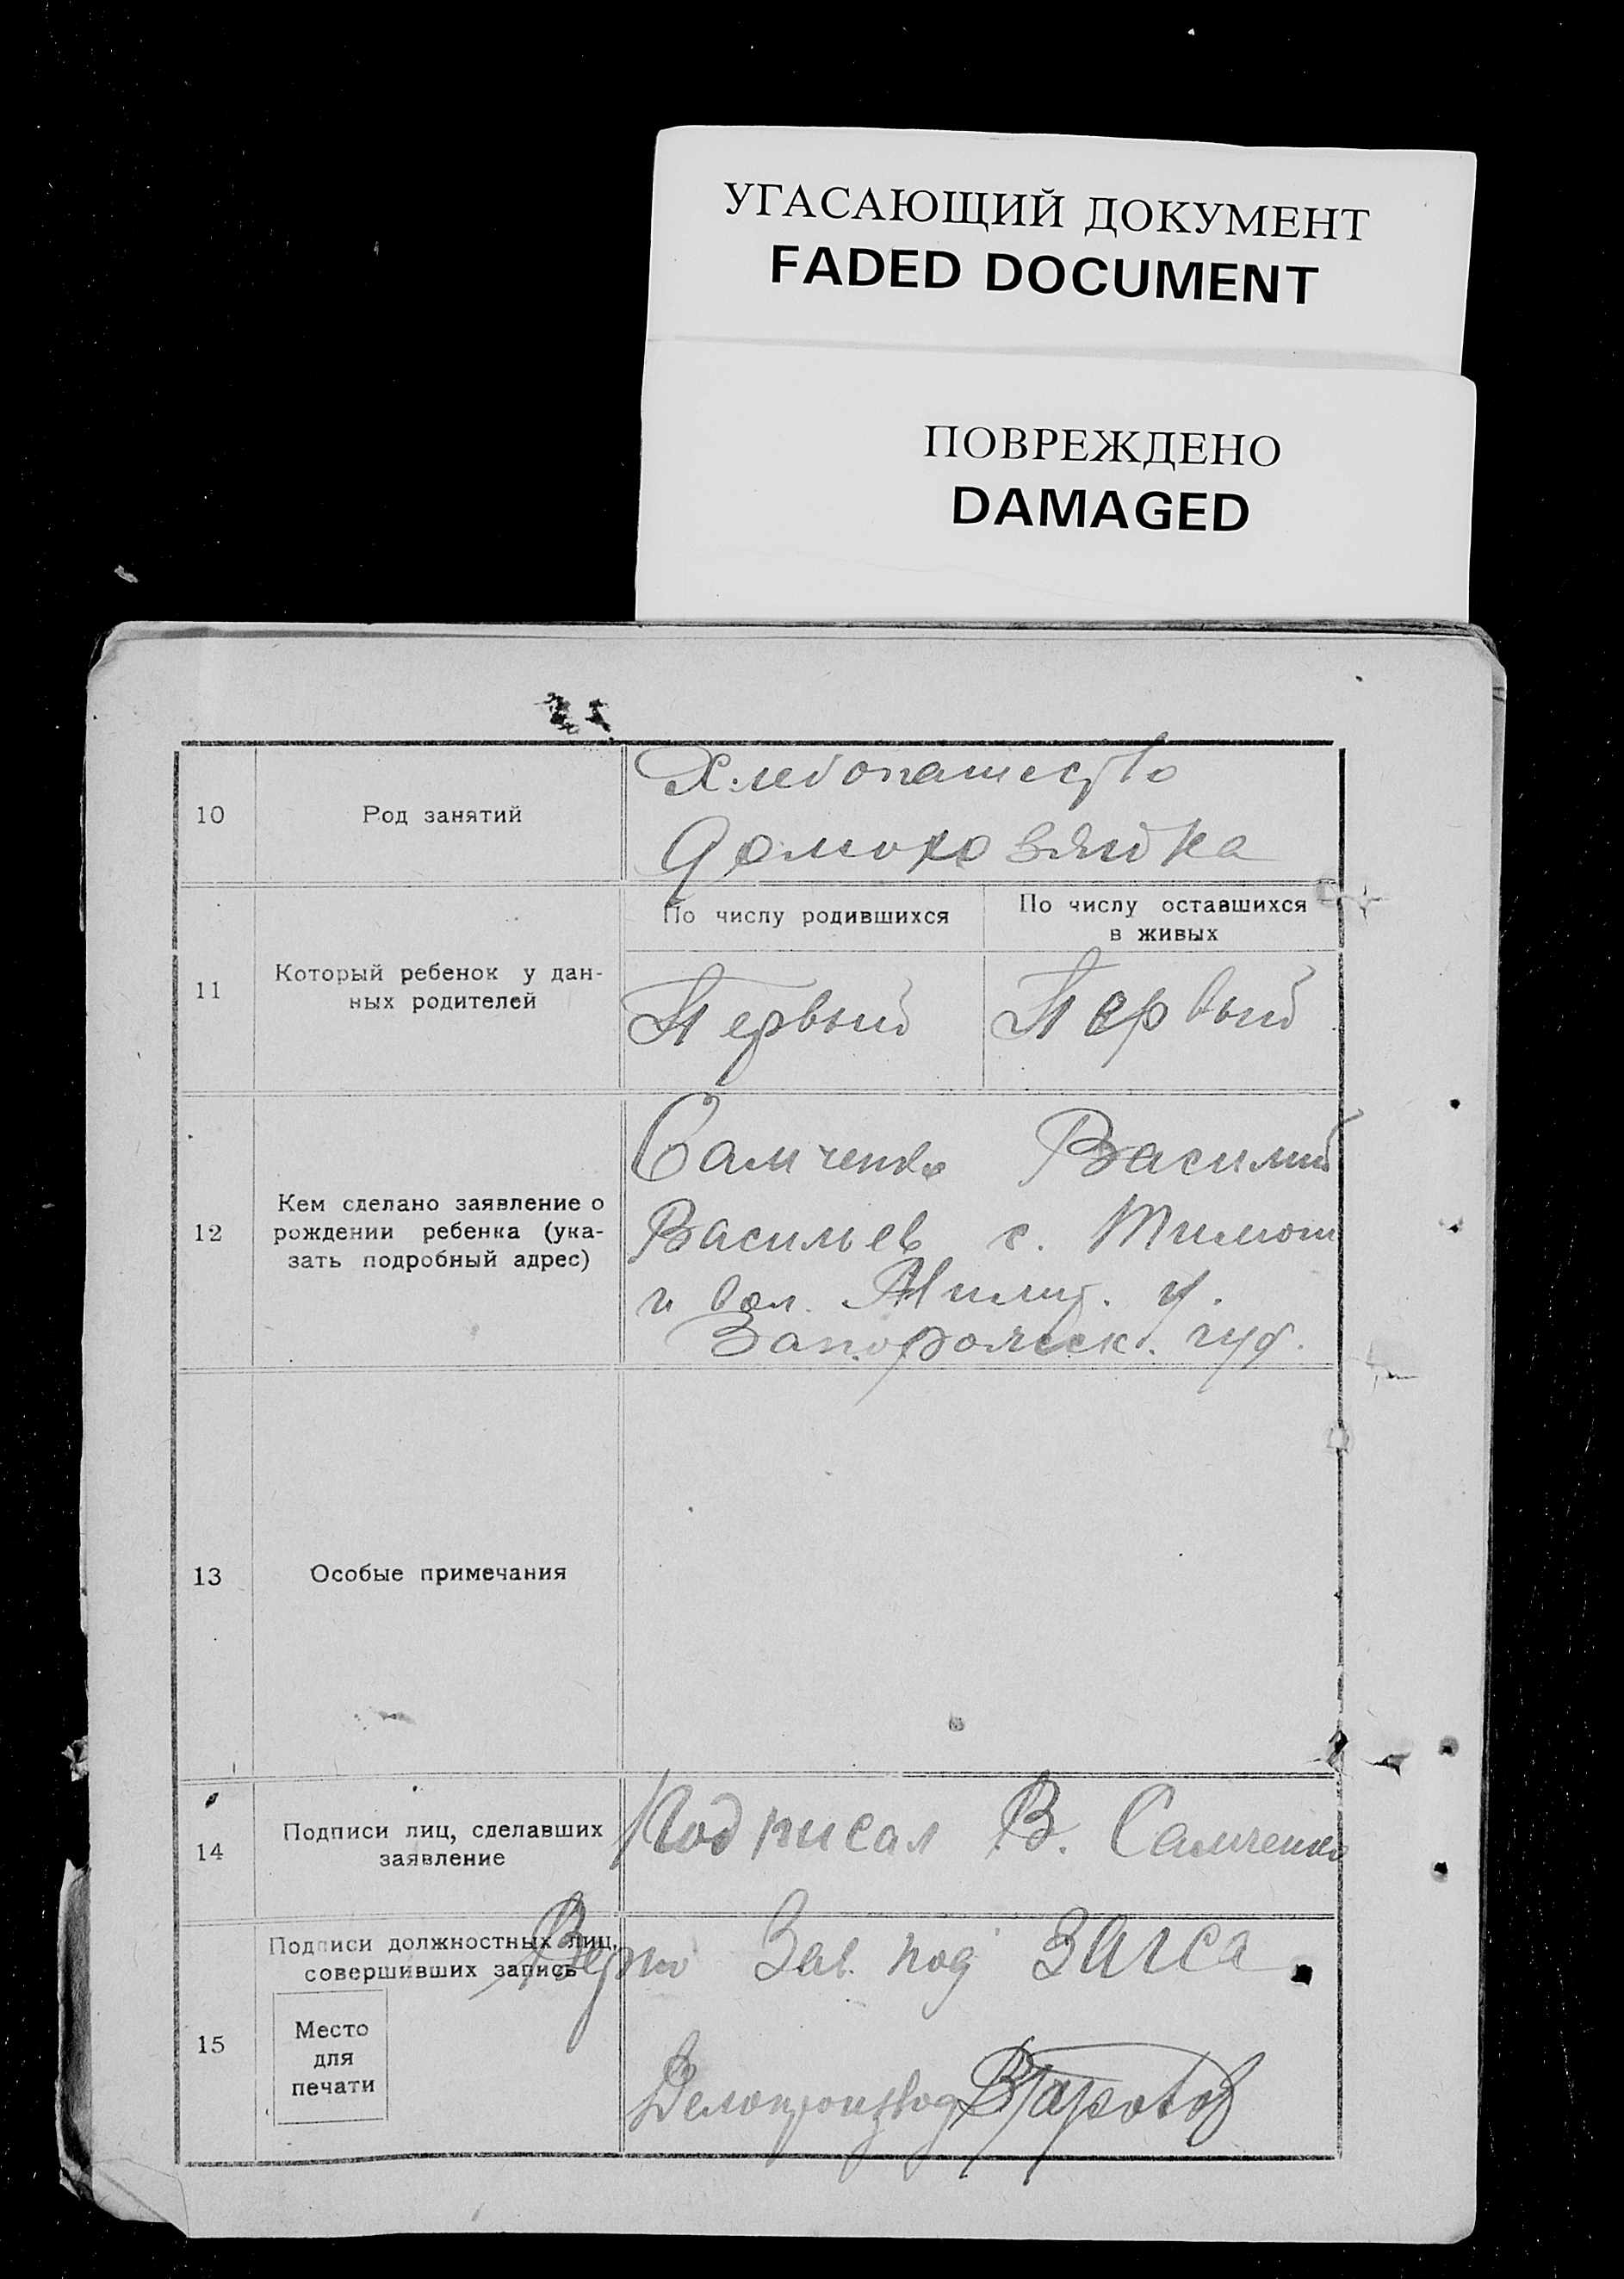 УГАСАЮЩИЙ ДОКУМЕНТ
FADED DOCUMENT
ПОВРЕЖДЕНО
DAMAGED
10
Род занятий
Хлебопашество
Домохозяйка
11
Который ребенок у дан-
ных родителей
По числу родившихся
По числу оставшихся
в живых
Первый
Первый
12
Кем сделано заявление о
рождении ребенка (ука-
зать подробный адрес)
Самченко Василий
Васильев с. Тимош
и вол. Мелит. у.
Запорожск. губ.
13
Особые примечания
14
Подписи лиц, сделавших
заявление
Подписал В. Самченко
15
Подписи должностных лиц,
совершивших запись
Верно Зав. под ЗАГСа
Место
для
печати
Делопроизвод